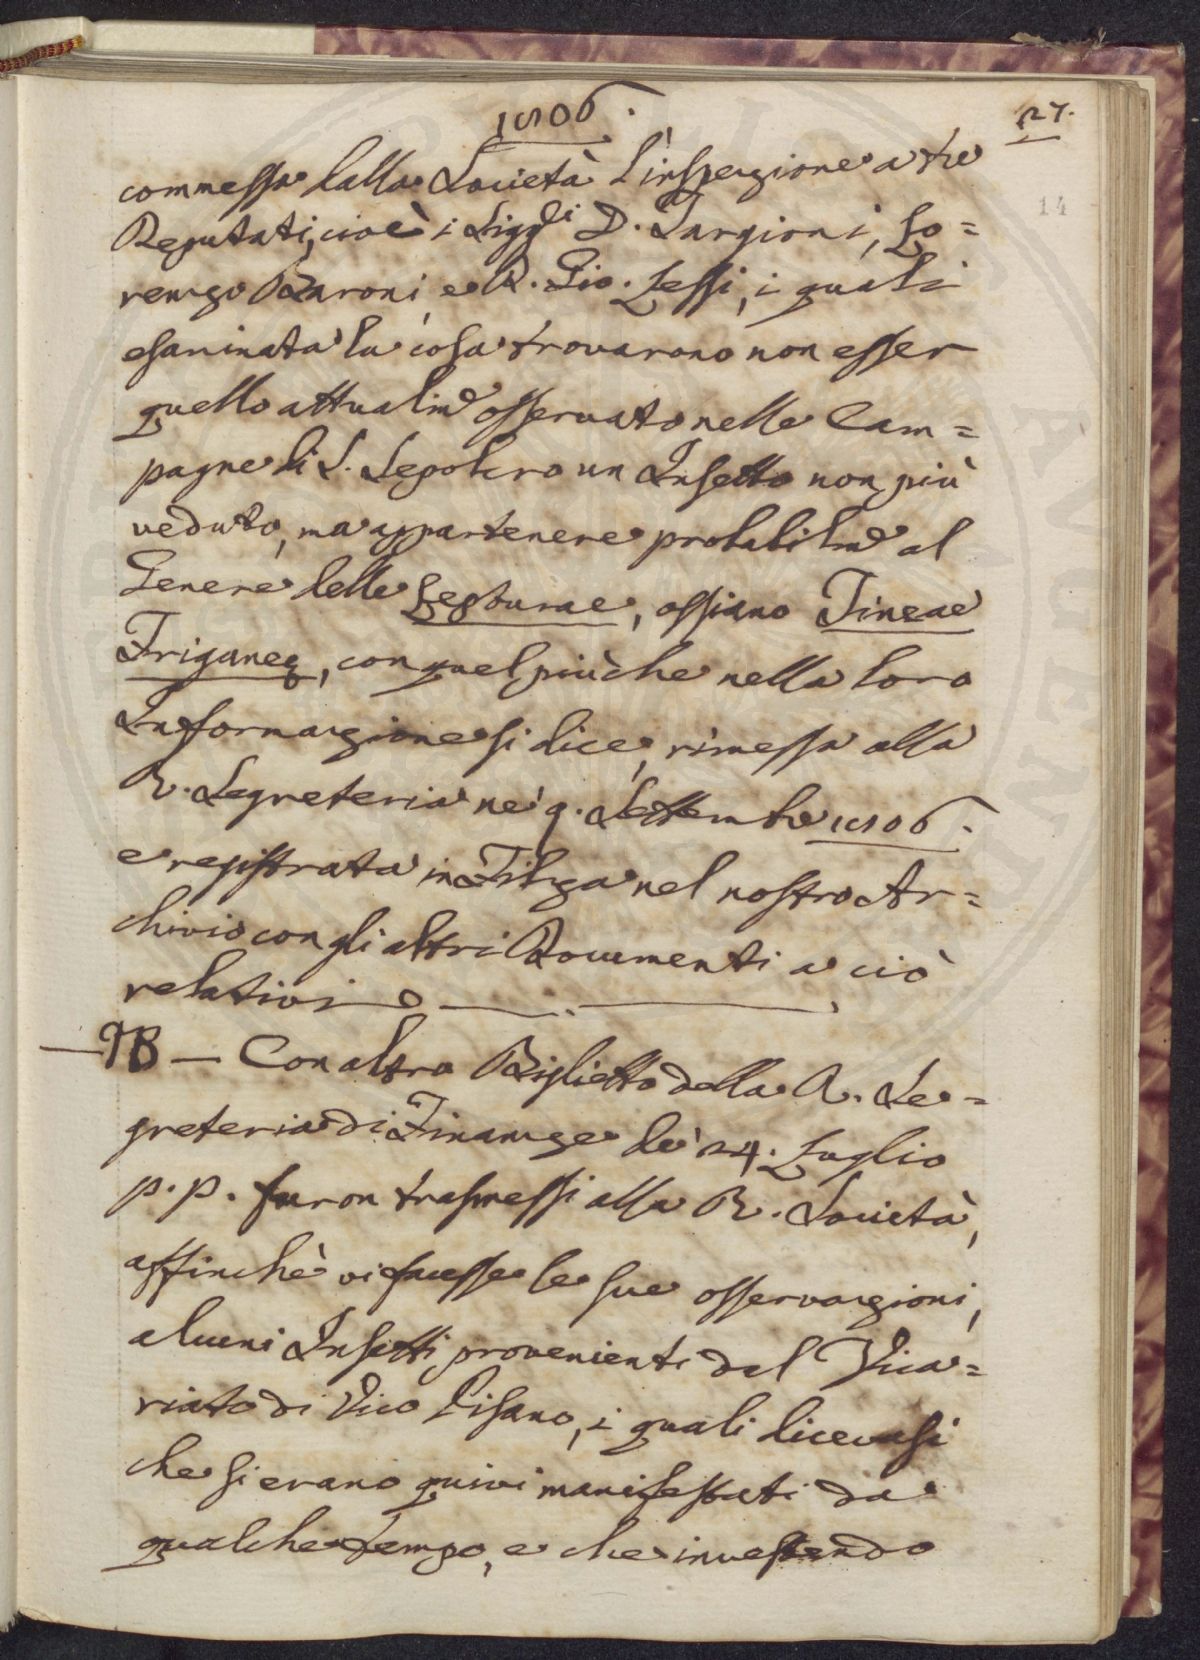 1806.
27.
14
commessa dalla Società l'inspezione a tre
Deputati, cioè i Sigg.ri D. Targioni, Lo=
renzo Baroni, e D. Gio. Lessi, i quali
esaminata la cosa trovarono non esser
quello attualm.e osservato nelle Cam=
pagne di S. Sepolcro un Insetto non più
veduto, ma appartenere probabilm.e al
Genere delle Lepturae, ossiano Tineae
Friganeę, con quel più che nella loro
Informazione si dice, rimessa alla
R. Segreteria ne' 9. Settembre 1806.
e registrata in Filza nel nostro Ar=
chivio con gli altri Documenti a ciò
relativi
— Con altro Biglietto della R. Se=
greteria di Finanze de' 24. Luglio
p. p. furon trasmessi alla R. Società,
affinchè vi facesse le sue osservazioni,
alcuni Insetti provenienti dal Vica=
riato di Vico Pisano, i quali dicevasi
che si erano quivi manifestati da
qualche tempo, e che investendo